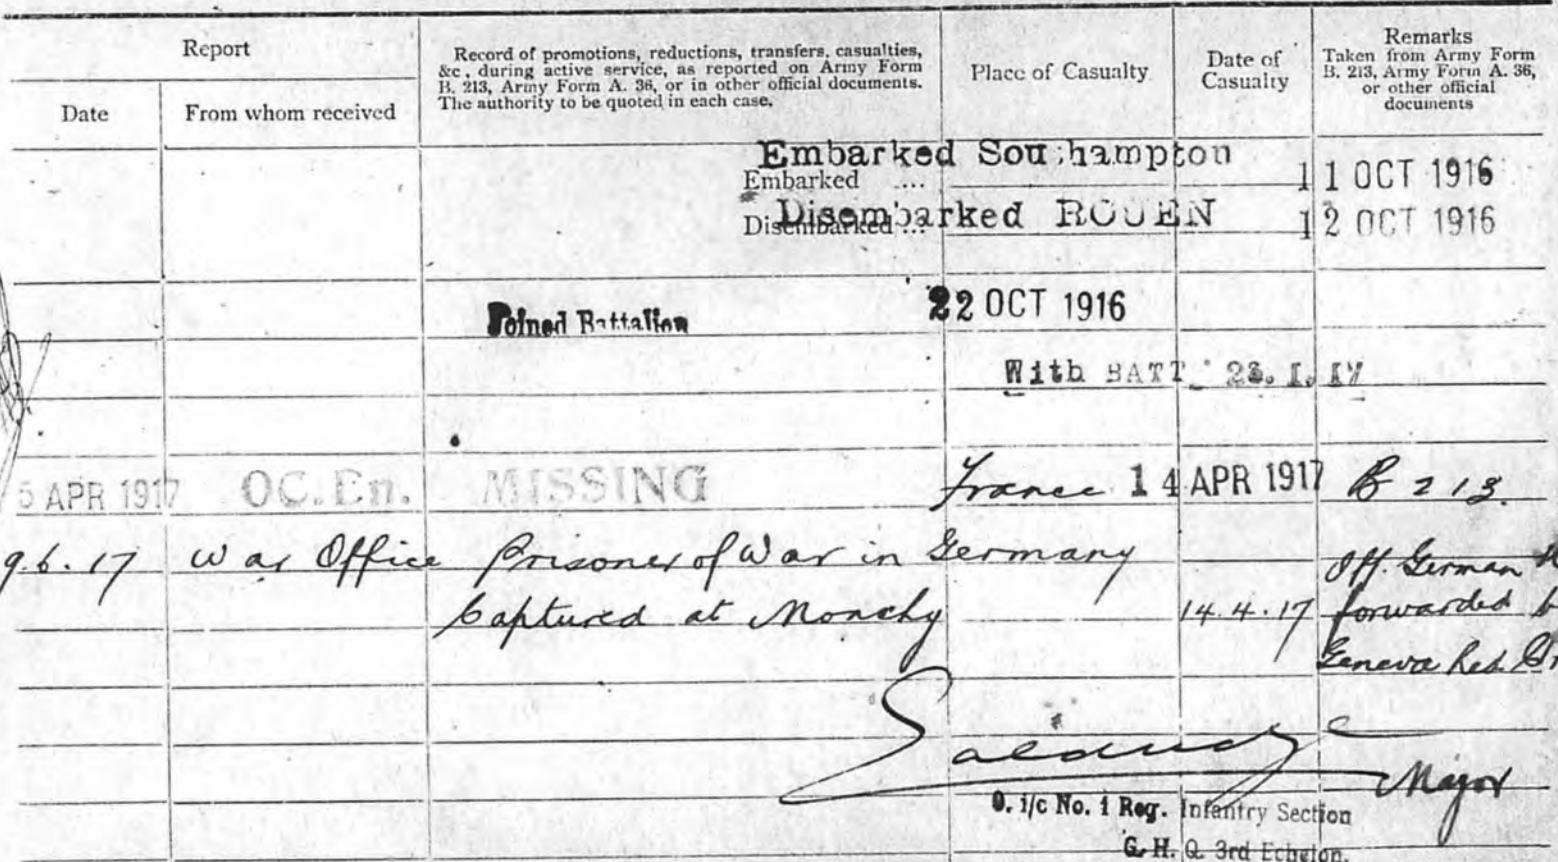 Report
Date
From whom received
Record of promotions, reductions, transfers, casualties,
&c., during active service, as reported on Army Form
B. 213, Army Form A. 36, or in other official documents.
The authority to be quoted in each case.
Place of Casualty
Date of
Casualty
Remarks
Taken from Army Form
B. 213, Army Form A. 36,
or other official
documents
Embarked Southampton
Embarked .... 11 OCT 1916
Disembarked ROUEN
Disembarked ... 12 OCT 1916
Joined Battalion 22 OCT 1916
With BATT
5 APR 1917 OC. En. MISSING France 14 APR 1917 B 213.
9.6.17 War Office Prisoner of War in Germany Off. German
Captured at Monchy 14.4.17 forwarded
Geneva Red
Major
O. i/c No. 1 Reg. Infantry Section
G. H. Q. 3rd Echelon.